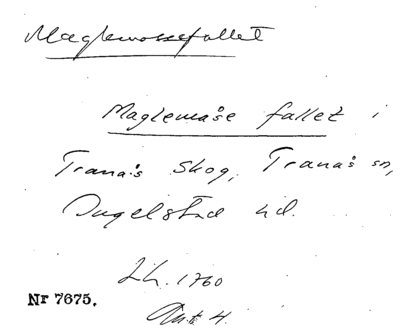 Maglemossefallet
Maglemåse fallet i
Tranås Skog, Tranås sn,
Ingelstad hd.
L.h. 1760
Akt 4.
Nr 7675.